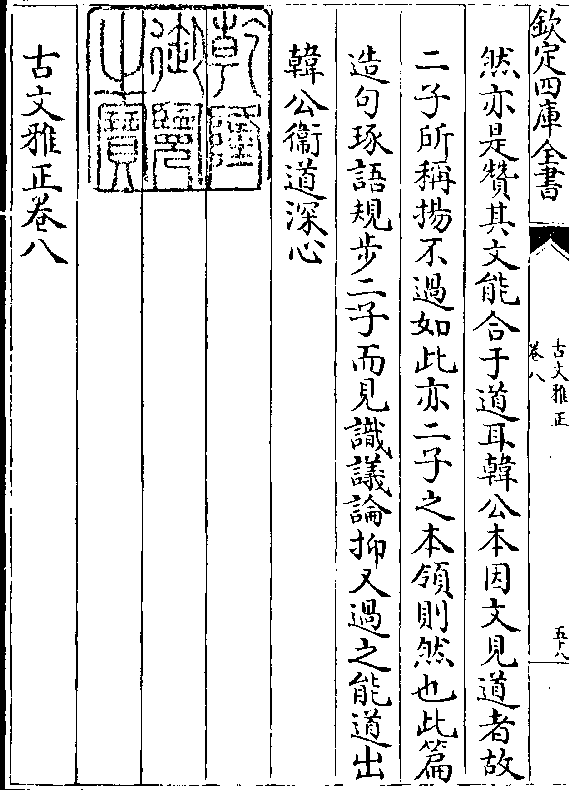 欽定四庫全書
古文雅正
卷八
五十八
然亦是贊其文能合于道耳韓公本因文見道者故
二子所稱揚不過如此亦二子之本領則然也此篇
造句琢語規步二子而見識議論抑又過之能道出
韓公衞道深心
乾隆
御覽
之寶
古文雅正卷八